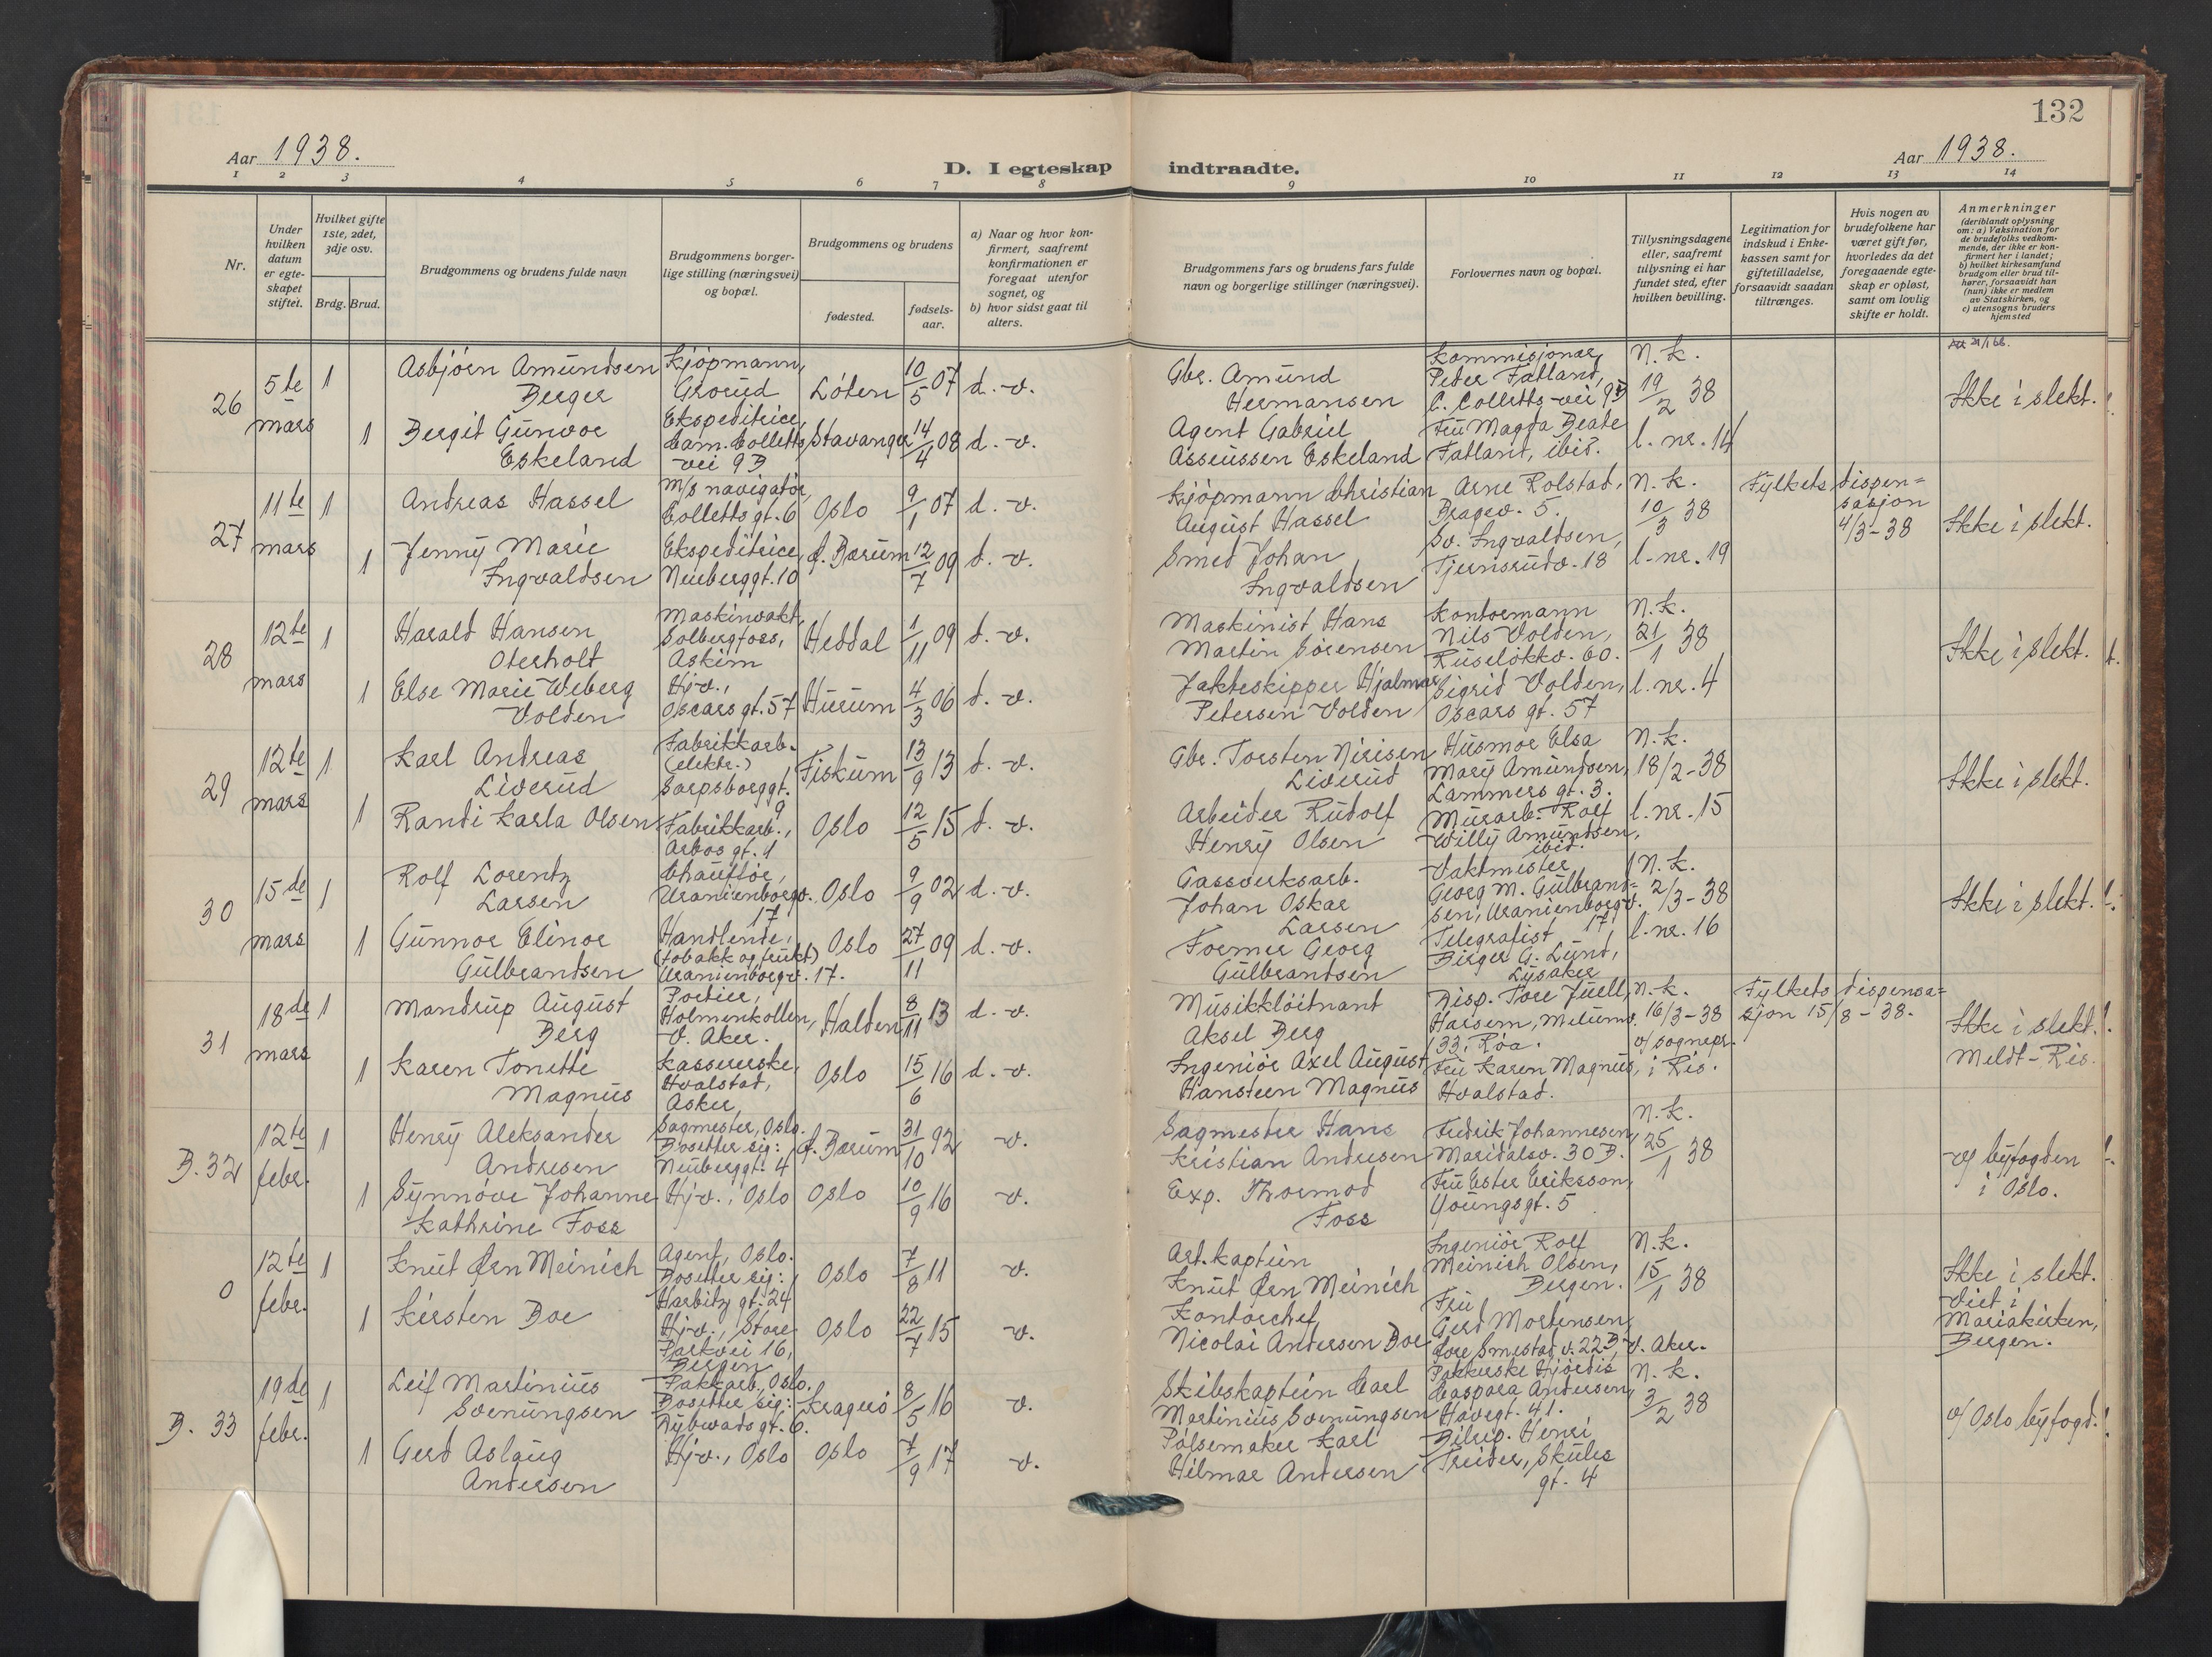 132
Aar 1938.
D. I egteskap indtraadte.
Aar 1938.
1 2 3 4 5 6 7 8 9 10 11 12 13 14
Nr.
Under hvilken datum er egteskapet stiftet.
Hvilket gifte 1ste, 2det, 3dje osv.
Brdg. Brud.
Brudgommens og brudens fulde navn
Brudgommens borgerlige stilling (næringsvei) og bopæl.
Brudgommens og brudens
fødested.
fødselsaar.
a) Naar og hvor konfirmert, saafremt konfirmationen er foregaat utenfor sognet, og
b) hvor sidst gaat til alters.
Brudgommens fars og brudens fars fulde navn og borgerlige stillinger (næringsvei).
Forlovernes navn og bopæl.
Tillysningsdagene eller, saafremt tillysning ei har fundet sted, efter hvilken bevilling.
Legitimation for indskud i Enkekassen samt for giftetilladelse, forsaavidt saadan tiltrænges.
Hvis nogen av brudefolkene har været gift før, hvorledes da det foregaaende egteskap er opløst, samt om lovlig skifte er holdt.
Anmerkninger
(deriblandt oplysning om: a) Vaksination for de brudefolks vedkommende, der ikke er konfirmert her i landet;
b) hvilket kirkesamfund brudgom eller brud tilhører, forsaavidt han (hun) ikke er medlem av Statskirken, og
c) utensogns bruders hjemsted
26 5te mars 1
Asbjörn Amundsen Berger
Kjöpmann, Grorud
Löten 10/5 07 d. v.
Gbr. Amund Hermansen
Kommisjonær Peter Fatland, C. Colletts vei 9B
N. k. 19/2 38
Ikke i slekt.
1 Bergit Gunvor Eskeland
Ekspeditrice, Cam. Colletts vei 9B
Stavanger 14/4 08 d. v.
Agent Gabriel Asseussen Eskeland
Fru Magda Beate Fatland, ibid.
l. nr. 14
27 11te mars 1
Andreas Hassel
m/s navigatör, Colletts gt. 6
Oslo 9/1 07 d. v.
Kjöpmann Christian August Hassel
Arne Rolstad, Bragev. 5.
N. k. 10/3 38
Fylkets dispensasjon 4/3-38
Ikke i slekt.
1 Jenny Marie Ingvaldsen
Ekspeditrice, Neuberggt. 10
Ö. Bærum 12/7 09 d. v.
Smed Johan Ingvaldsen
Sv. Ingvaldsen, Tjernsrudv. 18
l. nr. 19
28 12te mars 1
Harald Hansen Oterholt
Maskinvakt, Solbergfoss, Askim
Heddal 1/11 09 d. v.
Maskinist Hans Martin Sörensen
Kontormann Nils Volden, Ruselökkv. 60.
N. k. 21/1 38
Ikke i slekt.
1 Else Marie Weberg Volden
Hjv., Oscars gt. 57
Hurum 4/3 06 d. v.
Jakteskipper Hjalmar Petersen Volden
Sigrid Volden, Oscars gt. 57
l. nr. 4
29 12te mars 1
Karl Andreas Liverud
Fabrikkarb. (elektr.) Sarpsborggt. 9
Fiskum 13/9 13 d. v.
Gbr. Torsten Nirisen Liverud
Husmor Elsa Mary Amundsen, Lammers gt. 3.
N. k. 18/2-38
Ikke i slekt.
1 Randi Karla Olsen
Fabrikkarb., Arbos gt. 4
Oslo 12/5 15 d. v.
Arbeider Rudolf Henry Olsen
Murarb. Rolf Willy Amundsen, ibid.
l. nr. 15
30 15de mars 1
Rolf Lorentz Larsen
Chaufför, Uranienborgv. 17
Oslo 9/9 02 d. v.
Gassverksarb. Johan Oskar Larsen
Vaktmester Georg M. Gulbrandsen, Uranienborgv. 17,
N. k. 2/3-38
Ikke i slekt.
1 Gunnor Elinor Gulbrandsen
Handlende, (tobakk og frukt) Uranienborgv. 17.
Oslo 27/11 09 d. v.
Former Georg Gulbrandsen
Telegrafist Birger G. Lund, Lysaker
l. nr. 16
31 18de mars 1
Mandrup August Berg
Portier, Holmenkollen, V. Aker.
Halden 8/11 13 d. v.
Musikklöitnant Aksel Berg
Disp. Tore Juell, Harsem, Melumv. 33, Röa.
N. k. 16/3-38 v/ sognepr. i Ris.
Fylkets dispensasjon 15/8-38.
Ikke i slekt. Meldt-Ris.
1 Karen Tonette Magnus
Kassererske, Hvalstad, Asker
Oslo 15/6 16 d. v.
Ingeniör Axel August Hansteen Magnus
Fru Karen Magnus, Hvalstad.
B. 32 12te febr. 1
Henry Aleksander Andresen
Sagmester, Oslo. Bosetter sig: Neuberggt. 4
Ö. Bærum 31/10 92 v.
Sagmester Hans Kristian Andresen
Fredrik Johannesen, Maridalsv. 30 B.
N. k. 25/1 38
v/ byfogden i Oslo.
1 Synnöve Johanne Kathrine Foss
Hjv., Oslo
Oslo 10/9 16 v.
Exp. Thormod Foss
Fru Ester Eriksson, Youngsgt. 5
0 12te febr. 1
Knut Örn Meinich
Agent, Oslo. Bosetter sig: Harbitz gt. 24
Oslo 7/8 11 v.
Art. kaptein Knut Örn Meinich
Ingeniör Rolf Meinich Olsen, Bergen.
N. k. 15/1 38
Ikke i slekt. Viet i Mariakirken, Bergen.
1 Kirsten Boe
Hjv., Store Parkvei 16, Bergen
Oslo 22/7 15 v.
Kontorchef Nicolai Andersen Boe
Fru Gerd Mortensen, Övre Smestad v. 22 B, V. Aker.
B. 33 19de febr. 1
Leif Martinius Svenungsen
Pakkarb., Oslo. Bosetter sig: Dybwads gt. 6.
Kragerö 8/5 16 v.
Skibskaptein Carl Martinius Svenungsen
Pakkerske Hjördis Caspara Andersen, Havegt. 41.
N. k. 3/2 38
v/ Oslo byfogd.
1 Gerd Aslaug Andersen
Hjv., Oslo
Oslo 7/9 17 v.
Pölsemaker Karl Hilmar Andersen
Bilrep. Henri Treider, Skules gt. 4